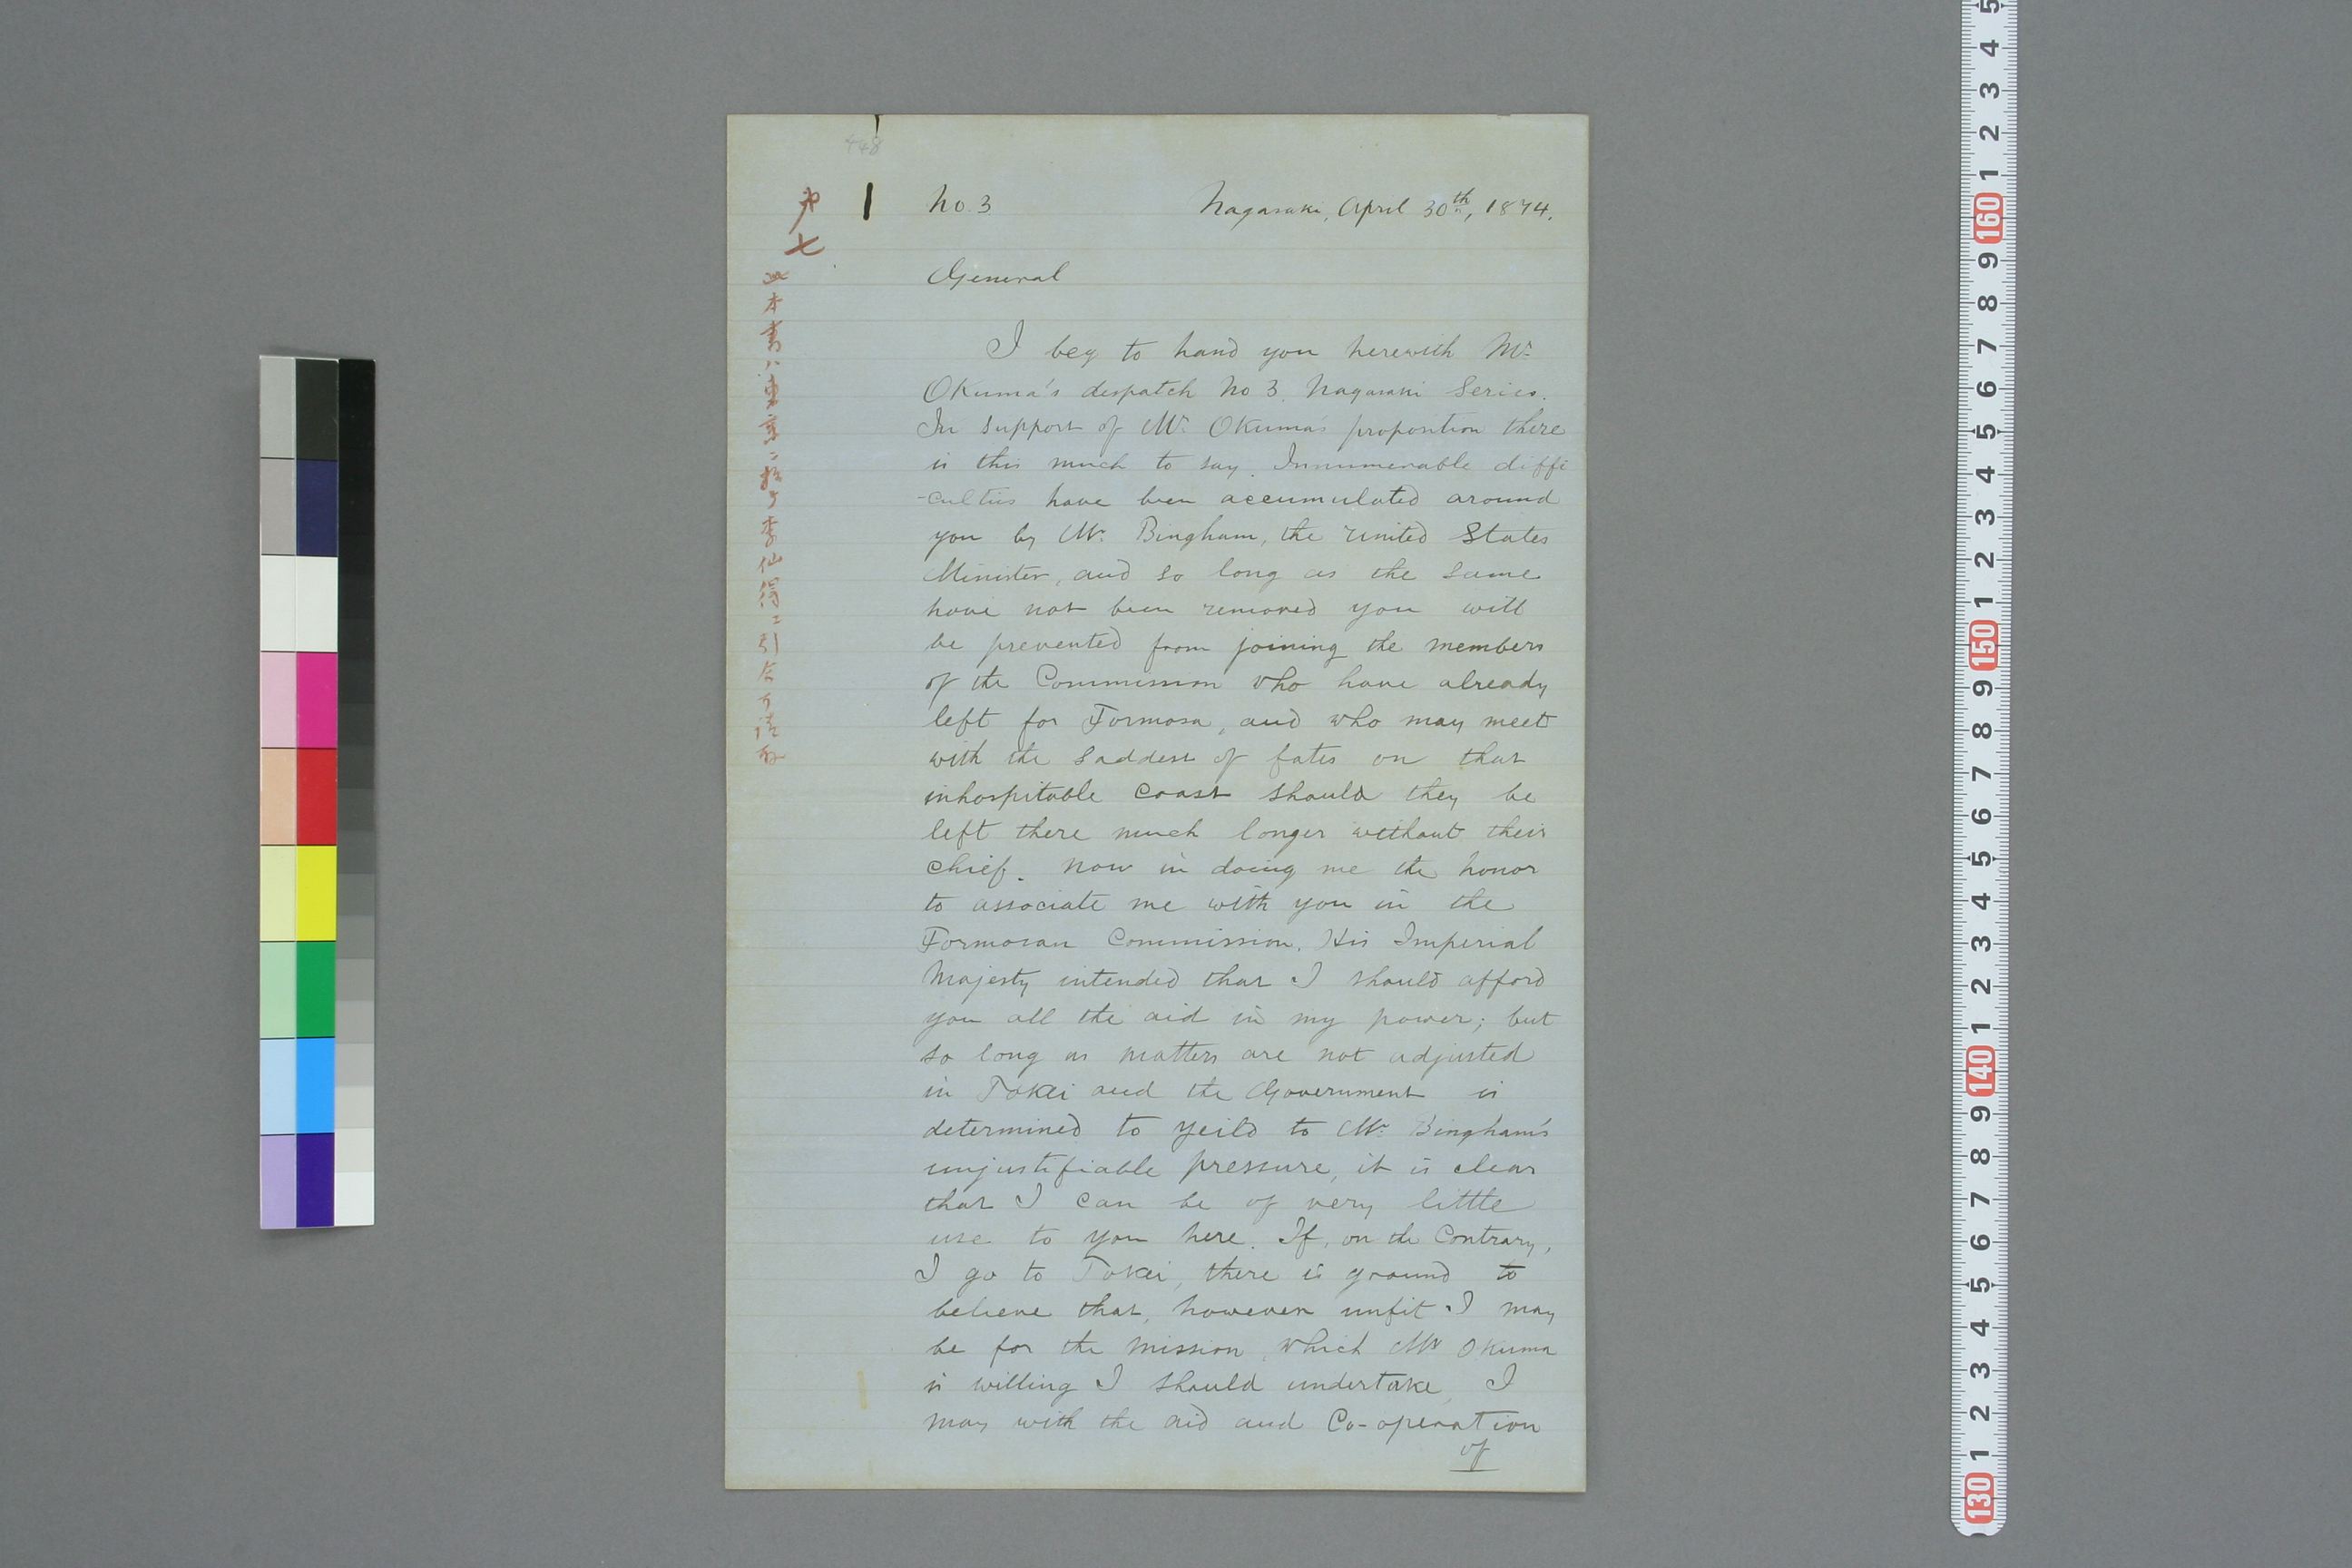 448
No. 3
Nagasaki, April 30th, 1874.
General
I beg to hand you herewith Mr.
Okuma's despatch No 3. Nagasaki Series.
In support of Mr. Okuma's proposition there
is this much to say. Innumerable diffi
-culties have been accumulated around
you by Mr. Bingham, the United States
Minister, and so long as the same
have not been removed you will
be prevented from joining the members
of the Commission who have already
left for Formosa, and who may meet
with the saddest of fates on that
inhospitable coast should they be
left there much longer without their
chief. Now in doing me the honor
to associate me with you in the
Formosan Commission, His Imperial
Majesty intended that I should afford
you all the aid in my power; but
so long as matters are not adjusted
in Tokei and the Government is
determined to yeild to Mr. Bingham's
unjustifiable pressure, it is clear
that I can be of very little
use to you here. If, on the Contrary,
I go to Tokei, there is ground to
believe that, however unfit I may
be for the mission which Mr Okuma
is willing I should undertake, I
may with the aid and Co-operation
of